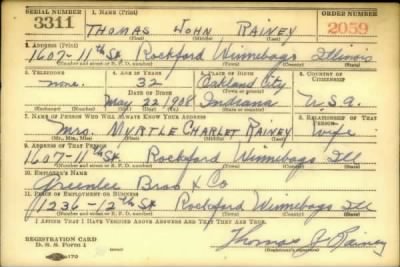 SERIAL NUMBER 1. NAME (Print) ORDER NUMBER
3311 THOMAS JOHN RAINEY 2059
(First) (Middle) (Last)
2. ADDRESS (Print)
1607-11th St Rockford Winnebago Illinois
(Number and street or R. F. D. number) (Town) (County) (State)
3. TELEPHONE 4. AGE IN YEARS 5. PLACE OF BIRTH 6. COUNTRY OF CITIZENSHIP
none. 32 Oakland City
DATE OF BIRTH (Town or county)
May 22 1908 Indiana U.S.A.
(Exchange) (Number) (Mo.) (Day) (Yr.) (State or country)
7. NAME OF PERSON WHO WILL ALWAYS KNOW YOUR ADDRESS 8. RELATIONSHIP OF THAT PERSON
Mrs. MYRTLE CHARLET RAINEY wife
(Mr., Mrs., Miss) (First) (Middle) (Last)
9. ADDRESS OF THAT PERSON
1607-11th St. Rockford Winnebago Ill
(Number and street or R. F. D. number) (Town) (County) (State)
10. EMPLOYER'S NAME
Greenlee Bros & Co
11. PLACE OF EMPLOYMENT OR BUSINESS
1236-12th St Rockford Winnebago Ill
(Number and street or R. F. D. number) (Town) (County) (State)
I AFFIRM THAT I HAVE VERIFIED ABOVE ANSWERS AND THAT THEY ARE TRUE.
REGISTRATION CARD
D. S. S. Form 1
Thomas J Rainey
(Registrant's signature)